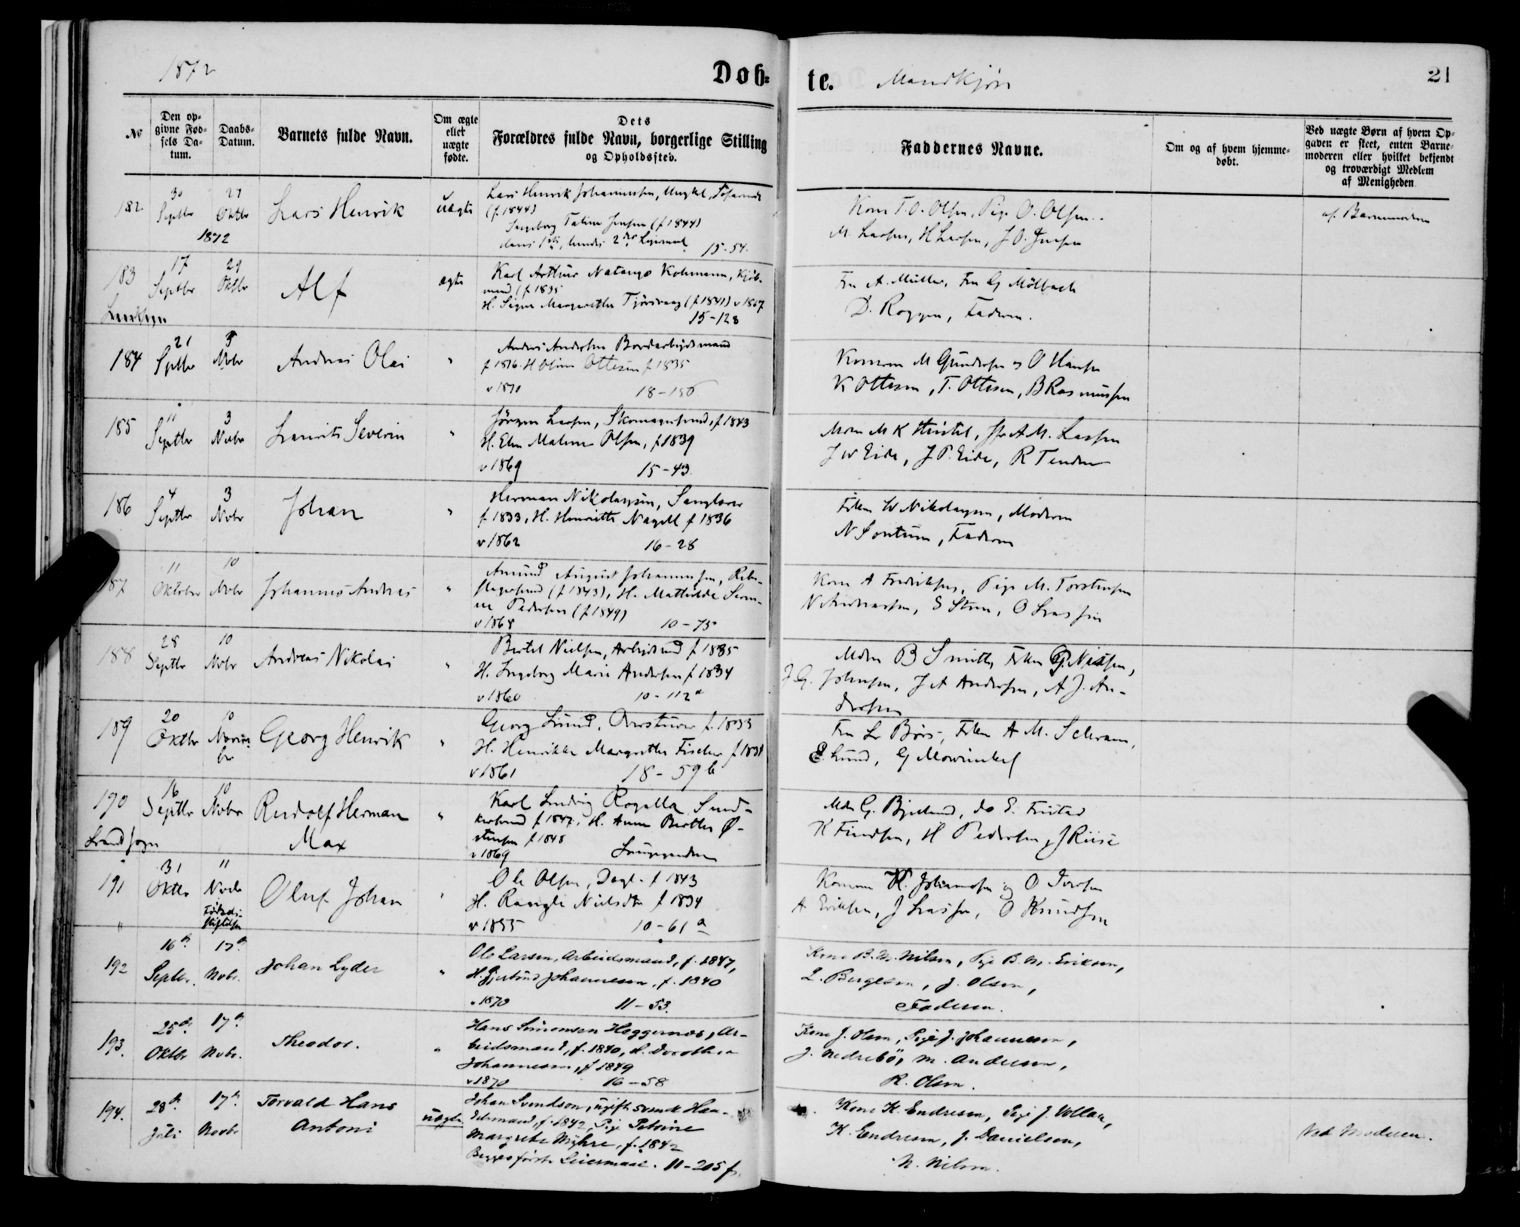 1872
Døb-
te.
Mandkjøn
21
No
Den opgivne Fødsels Datum.
Daabs-Datum.
Barnets fulde Navn.
Om ægte eller uægte fødte.
Dets Forældres fulde Navn, borgerlige Stilling og Opholdssted.
Faddernes Navne.
Om og af hvem hjemmedøbt.
Ved uægte Børn af hvem Opgaven er skeet, enten Barnemoderen eller hvilket bekjendt og troværdigt Medlem af Menigheden
182
30 Septbr
27 Oktbr
1872
Lars Henrik
uægte
Lars Henrik Johannesen, Ungkl,
(f 1844)
Ingeborg Taline Jensen (f 1844)
15-54
Kone T O. Olsen, Pige O. Olsen
M. Larsen, H Larsen, J O. Jensen
af Barnemoderen
183
17 Septbr
29 Oktbr
Alf
ægte
Karl Arthur Natango Kohmann, Kjøb-
mand (f 1835
H. Signe Margarethe (f 1841) v 1867
15-128
Fru A. Müller, Fru G Möllbach
D. Roggen, Faderen.
184
21 Septbr
3 Nvbr
Andreas Olai
"
Anders Andersen Bordarbeidsmand
f 1836 H Oline Ottesen f 1835
v 1871
18-156
Konerne M Gundersen og O Hansen
K Ottesen, T. Ottesen, B Rasmussen
185
11 Septbr
3 Novbr
Lauritz Severin
"
Jørgen Larsen, Skomagersvend, f 1843
H. Elen Malene Olsen, f 1839
v 1869
15-43
J W Eide, J P. Eide, R Tender
186
4 Septbr
3 Novbr
Johan
"
Herman Nikolaysen, Sanglærer
f 1833, H. Henriette Nagell f 1836
v 1862
16-28
Frkn W Nikolaysen, Moderen
N Sontum, Faderen
187
11 Oktober
10 Novbr
Johannes Andreas
"
Amund August Johannesen, Reb-
slagersvend (f 1843), H. Mathilde Seve-
rine Pedersen (f 1849)
v 1868
10-75
Kone A Fredriksen, Pige M. Torstensen
N Andreassen, S Steen, O Larssen
188
28 Septbr
10 Novbr
Andreas Nikolai
"
Bertel Nielsen, Arbeidsmd f 1835
H. Ingeborg Marie Andersen f 1834
v 1860
10-112a
Mdm B Smith, Frkn G. Nielsen,
J. G. Johnsen, J A Andersen, A J. An-
dersen
189
20 Oktbr
10 Novem-
br
Georg Henrik
"
Georg Lund, f. 1833
H. Henrikke Margrethe Fischer f 1838
v 1861
18-59 b
Fru L Børs, Frkn A M. Schram,
E Lund, G Mowinckel
190
16 Septbr
10 Novbr
Rudolf Herman
Max
"
Karl Ludvig Rogalla Sned-
kersvend f 1847, H. Anne Berthe Ø-
stensen f 1848
v 1869
Mdm G. Bjelland, do E. Fristad
K Knudsen, H Pedersen, J Riise
191
31 Oktbr
" Novbr
Oluf Johan
"
Ole Olsen, Dagl. f 1843
H. Rangle Nielsdtr f 1834
v 1855
10-61 a
Konerne K. Johannesen og O Iversen
A Eriksen, J Larssen, O Knudsen
192
16de Septbr.
17de Novbr.
Johan Lyder
"
Ole Larsen, Arbeidsmand, f. 1847,
H. Gjertrud Johannesen, f. 1840
v 1870
11-53.
Kone B. M. Nilsen, Pige B. M. Eriksen,
L. Børgesen, J. Olsen,
Faderen.
193.
25de Oktbr
17de Novbr.
Theodor.
"
Hans Simonsen Heggernæs, Ar-
beidsmand, f. 1840, H. Dorothea
Johannesen, f 1849
v 1870
16-58
Kone J. Olsen, Pige J. Johannesen,
J. Nedrebö, M. Andersen,
R. Olsen.
194.
28de Juli
17de Novbr
Torvald Hans
Antoni
uægte
Johan Svendsen, ugift svensk Han-
delsmand, f. 1842, Pige Petrine
Margrete Myhre, f. 1842
Begges første Leiermaal. 11-205 f.
Kone K. Endresen, Pige J. Vollan,
K. Endresen, J. Danielsen,
N. Nilsen.
Ved Moderen.